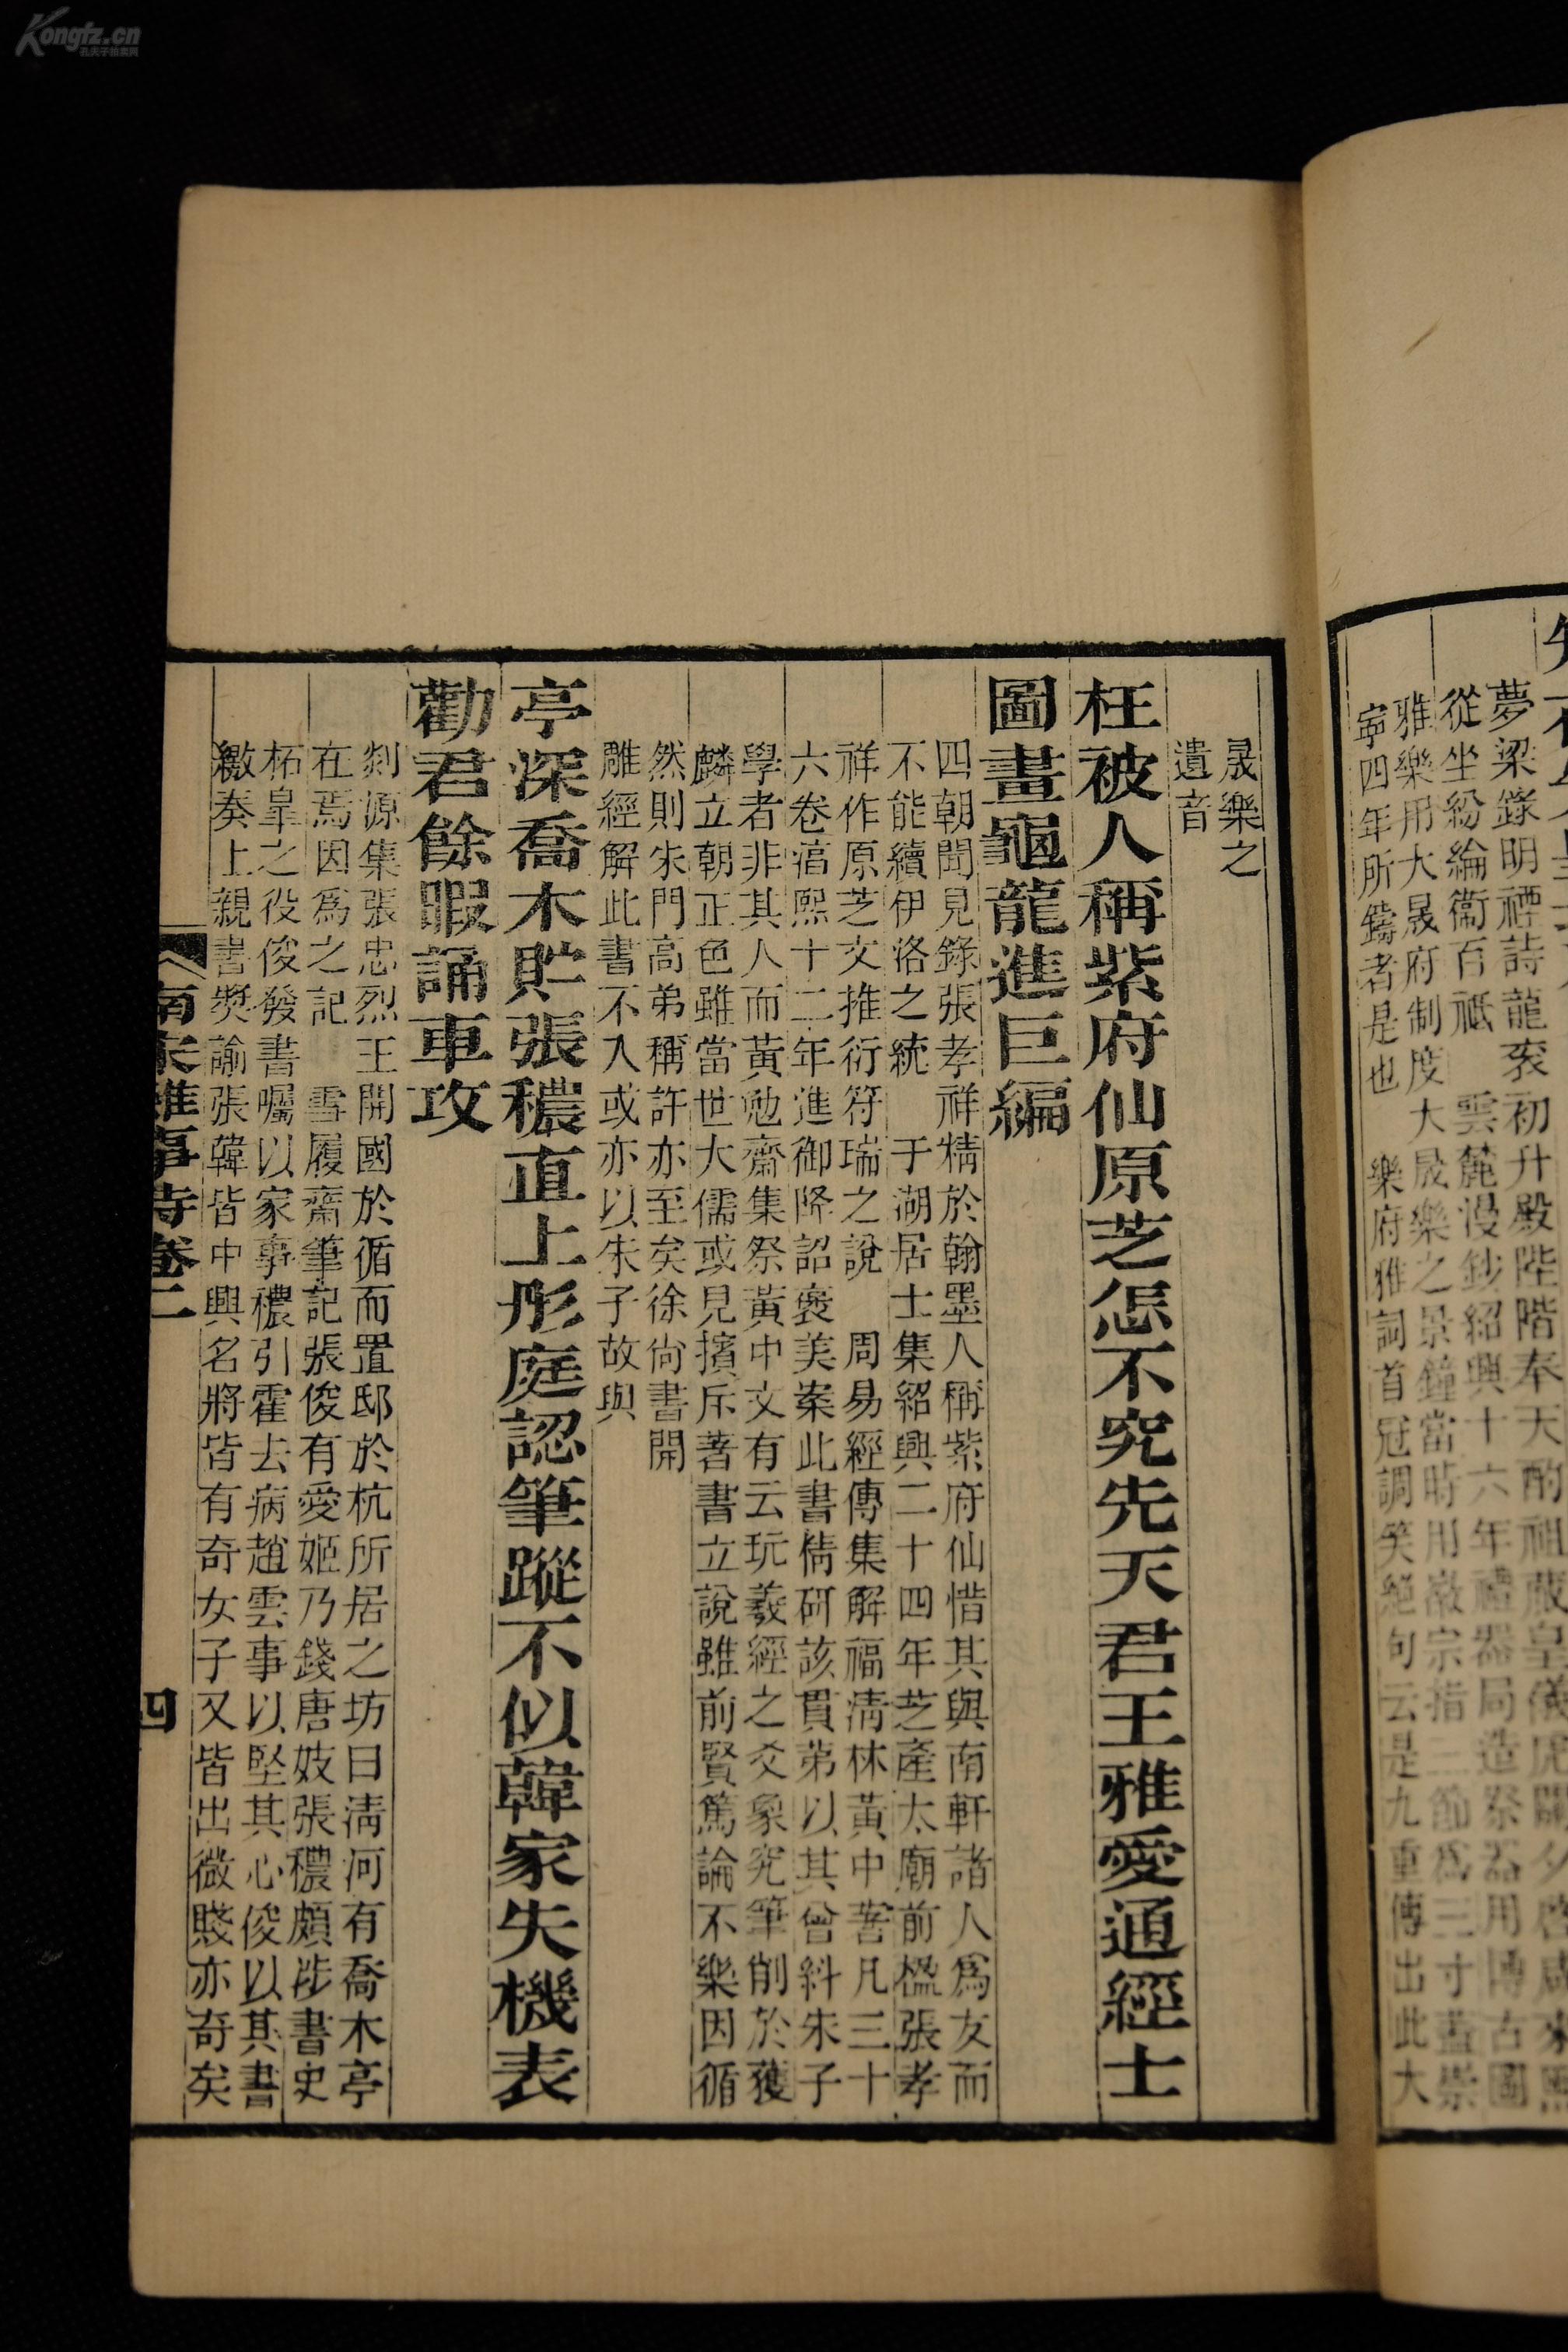 夢梁錄明禋詩龍袞初升殿陛階奉天酌祖
從坐紛綸衞百祗
雲麓漫鈔紹興十六年禮器局造祭器用博古圖
雅樂用大晟府制度大晟樂之景鐘當時用徽宗指三節爲三寸蓋崇
寧四年所鑄者是也
樂府雅詞首冠調笑絕句云是九重傳出此大
晟樂之
遺音
枉被人稱紫府仙原芝怎不究先天君王雅愛通經士
圖畫龜龍進巨編
四朝聞見錄張孝祥精於翰墨人稱紫府仙惜其與南軒諸人爲友而
不能續伊洛之統
于湖居士集紹興二十四年芝產太廟前楹張孝
祥作原芝文推衍符瑞之說
周易經傳集解福淸林黃中著凡三十
六卷湻熙十二年進御降詔褒美案此書精研該貫弟以其曾糾朱子
學者非其人而黃勉齋集祭黃中文有云玩羲經之爻象究筆削於獲
麟立朝正色雖當世大儒或見擯斥著書立說雖前賢篤論不樂因循
然則朱門高弟稱許亦至矣徐尙書開
雕經解此書不入或亦以朱子故與
亭深喬木貯張穠直上彤庭認筆蹤不似韓家失機表
勸君餘暇誦車攻
剡源集張忠烈王開國於循而置邸於杭所居之坊曰淸河有喬木亭
在焉因爲之記
雪履齋筆記張俊有愛姬乃錢唐妓張穠頗涉書史
柘皐之役俊發書囑以家事穠引霍去病趙雲事以堅其心俊以其書
繳奏上親書奬諭張韓皆中興名將皆有奇女子又皆出微賤亦奇矣
南宋雜事詩卷二
四
Kongfz.cn
孔夫子拍卖网